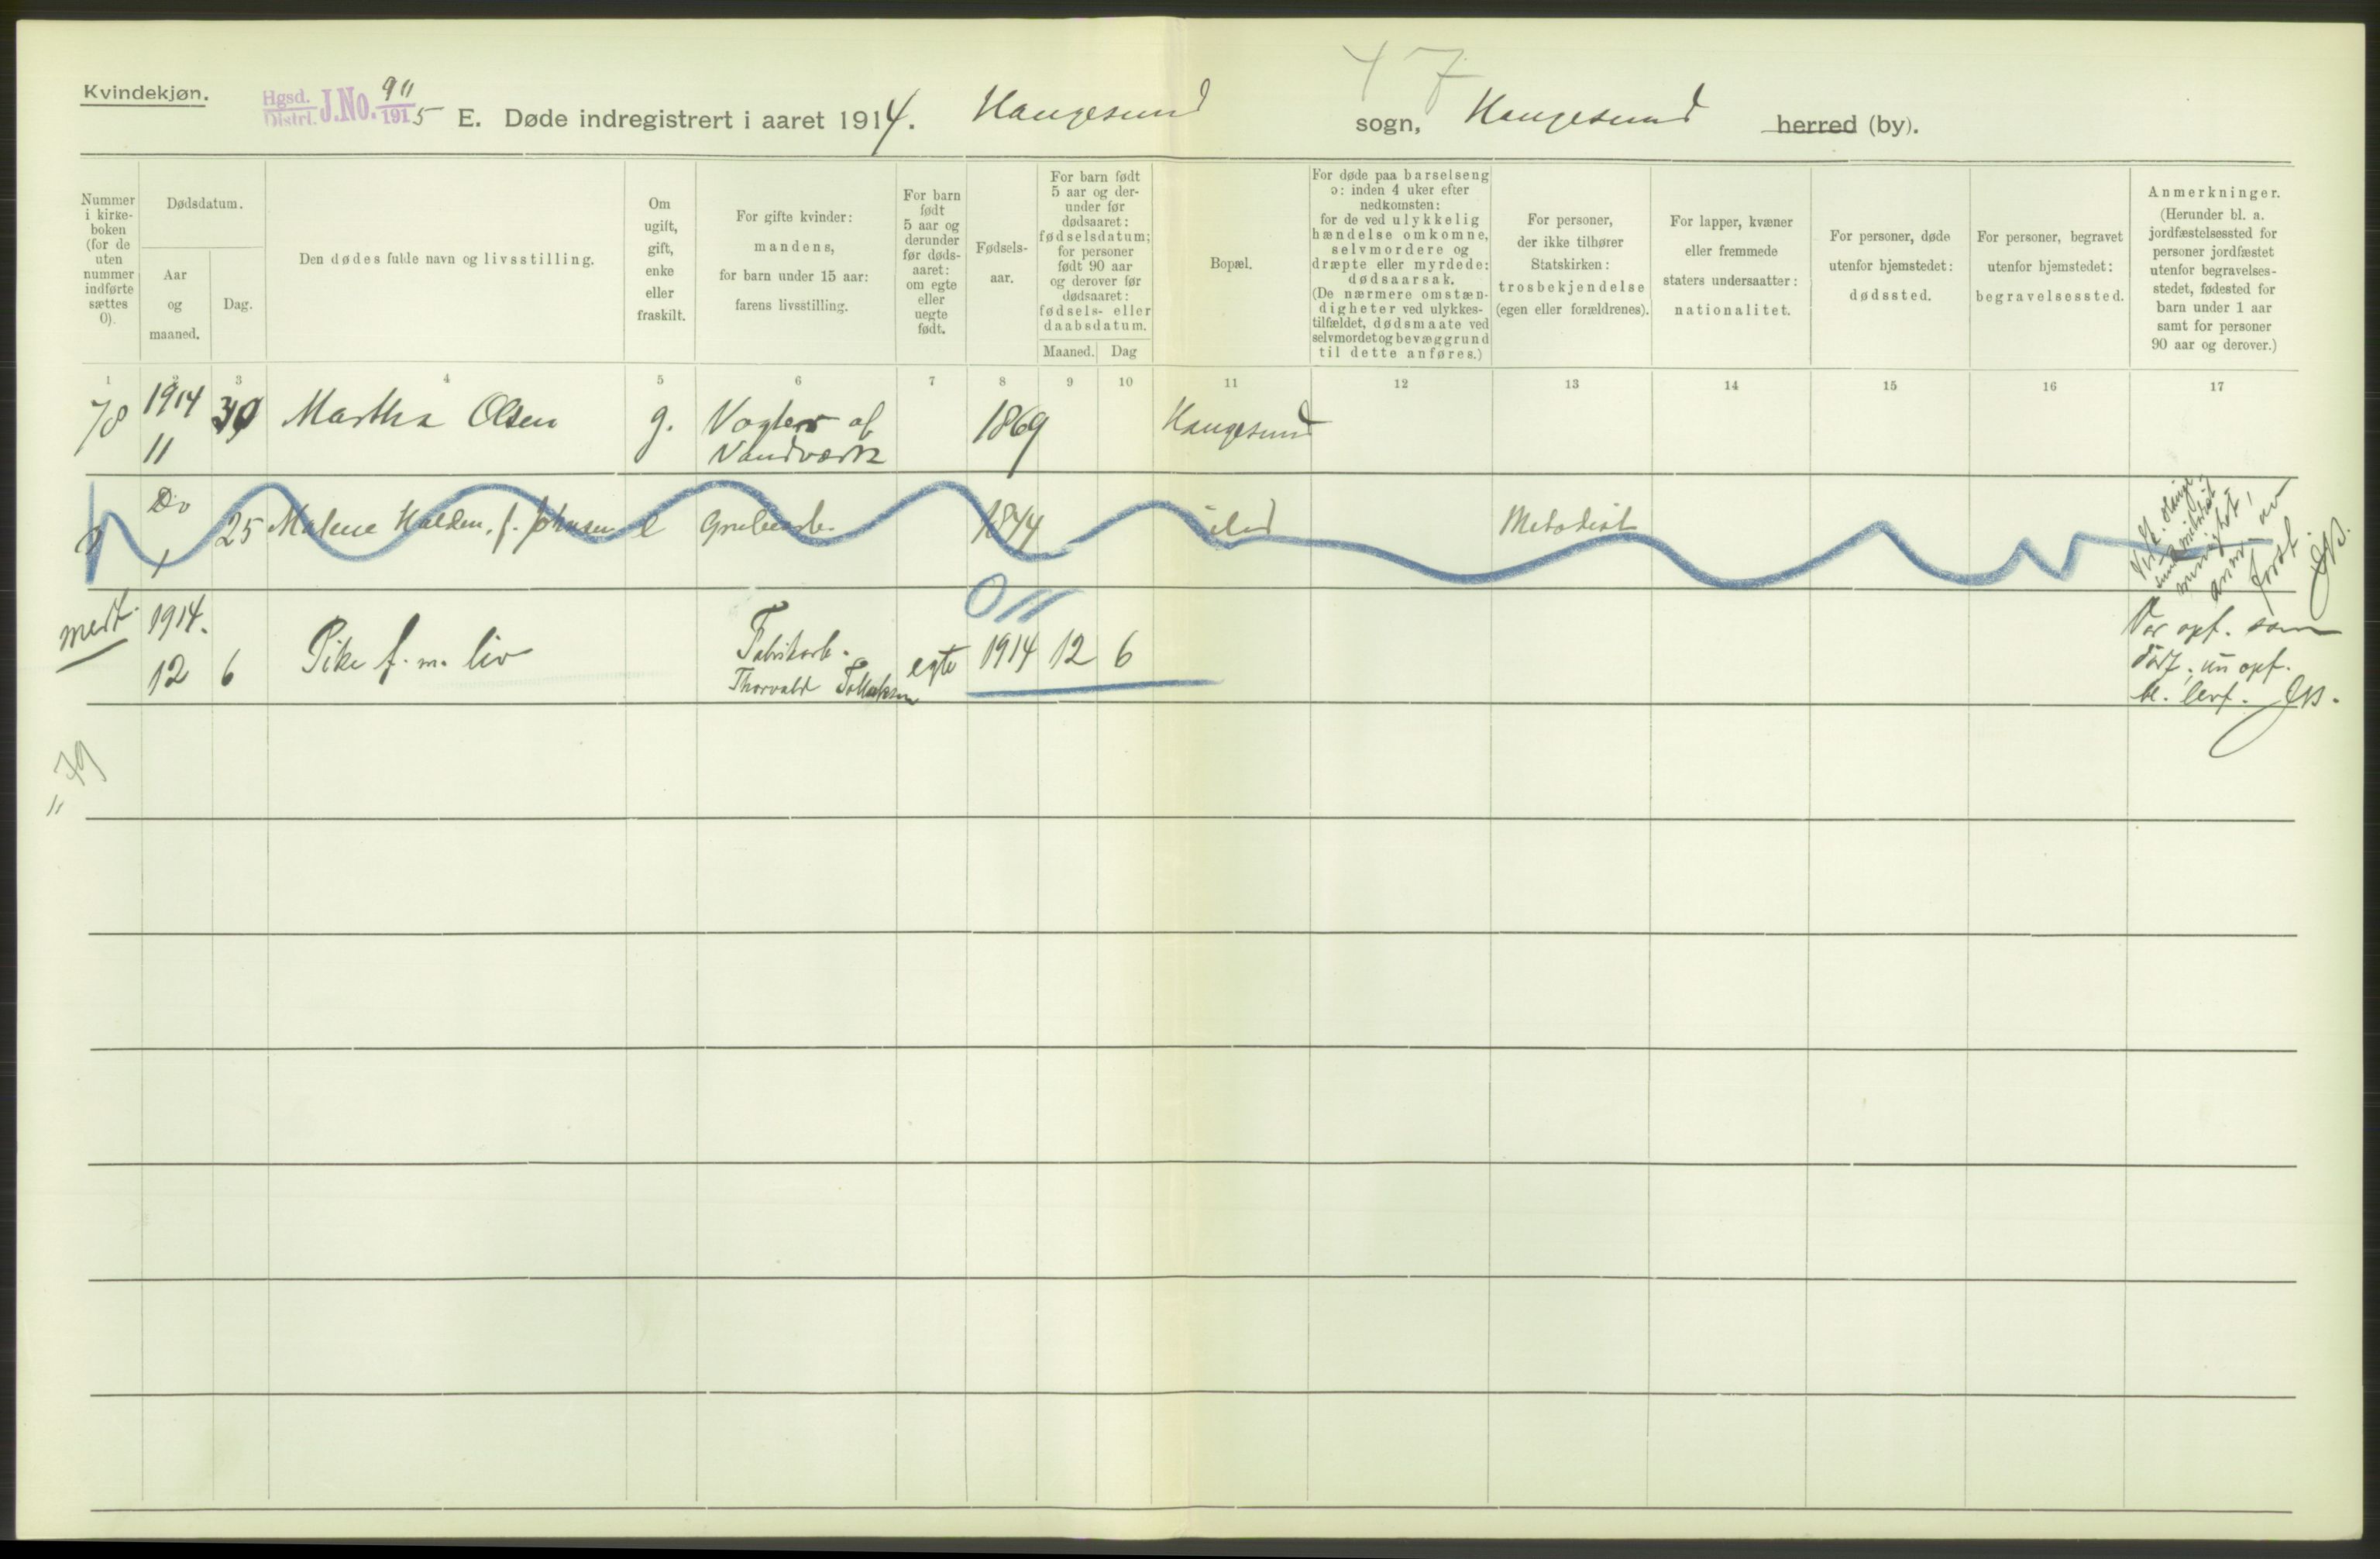 47
Kvindekjøn.
Hgsd. Distri. J.No. 911 1915
E. Døde indregistrert i aaret 1914. Haugesund sogn, Haugesund herred (by).
Nummer
i kirke-
boken
(for de
uten
nummer
indførte
sættes
0).
Dødsdatum.
Aar
og
maaned.
Dag.
Den dødes fulde navn og livsstilling.
Om
ugift,
gift,
enke
eller
fraskilt.
For gifte kvinder:
mandens,
for barn under 15 aar:
farens livsstilling.
For barn
født
5 aar og
derunder
før døds-
aaret:
om egte
eller
uegte
født.
Fødsels-
aar.
For barn født
5 aar og der-
under før
dødsaaret:
fødselsdatum;
for personer
født 90 aar
og derover før
dødsaaret:
fødsels- eller
daabsdatum.
Maaned. Dag
Bopæl.
For døde paa barselseng
ɔ: inden 4 uker efter
nedkomsten:
for de ved ulykkelig
hændelse omkomne,
selvmordere og
dræpte eller myrdede:
dødsaarsak.
(De nærmere omstæn-
digheter ved ulykkes-
tilfældet, dødsmaate ved
selvmordet og bevæggrund
til dette anføres.)
For personer,
der ikke tilhører
Statskirken:
trosbekjendelse
(egen eller forældrenes).
For lapper, kvæner
eller fremmede
staters undersaatter:
nationalitet.
For personer, døde
utenfor hjemstedet:
dødssted.
For personer, begravet
utenfor hjemstedet:
begravelsessted.
Anmerkninger.
(Herunder bl. a.
jordfæstelsessted for
personer jordfæstet
utenfor begravelses-
stedet, fødested for
barn under 1 aar
samt for personer
90 aar og derover.)
1 2 3 4 5 6 7 8 9 10 11 12 13 14 15 16 17
78 1914 30 Martha Olsen g. Vogter af 1869 Haugesund
11 Vandværk
Do 25 Malene Halden, f. Johnsen e Grubearb. 1844 Metodist
1
011
medt. 1914. Fabrikarb. Var opf. som
12 6 Pike f. m. liv egte 1914 12 6 dødf., nu opf.
Thorvald Tollaksen bl. levf. JB.
" 79